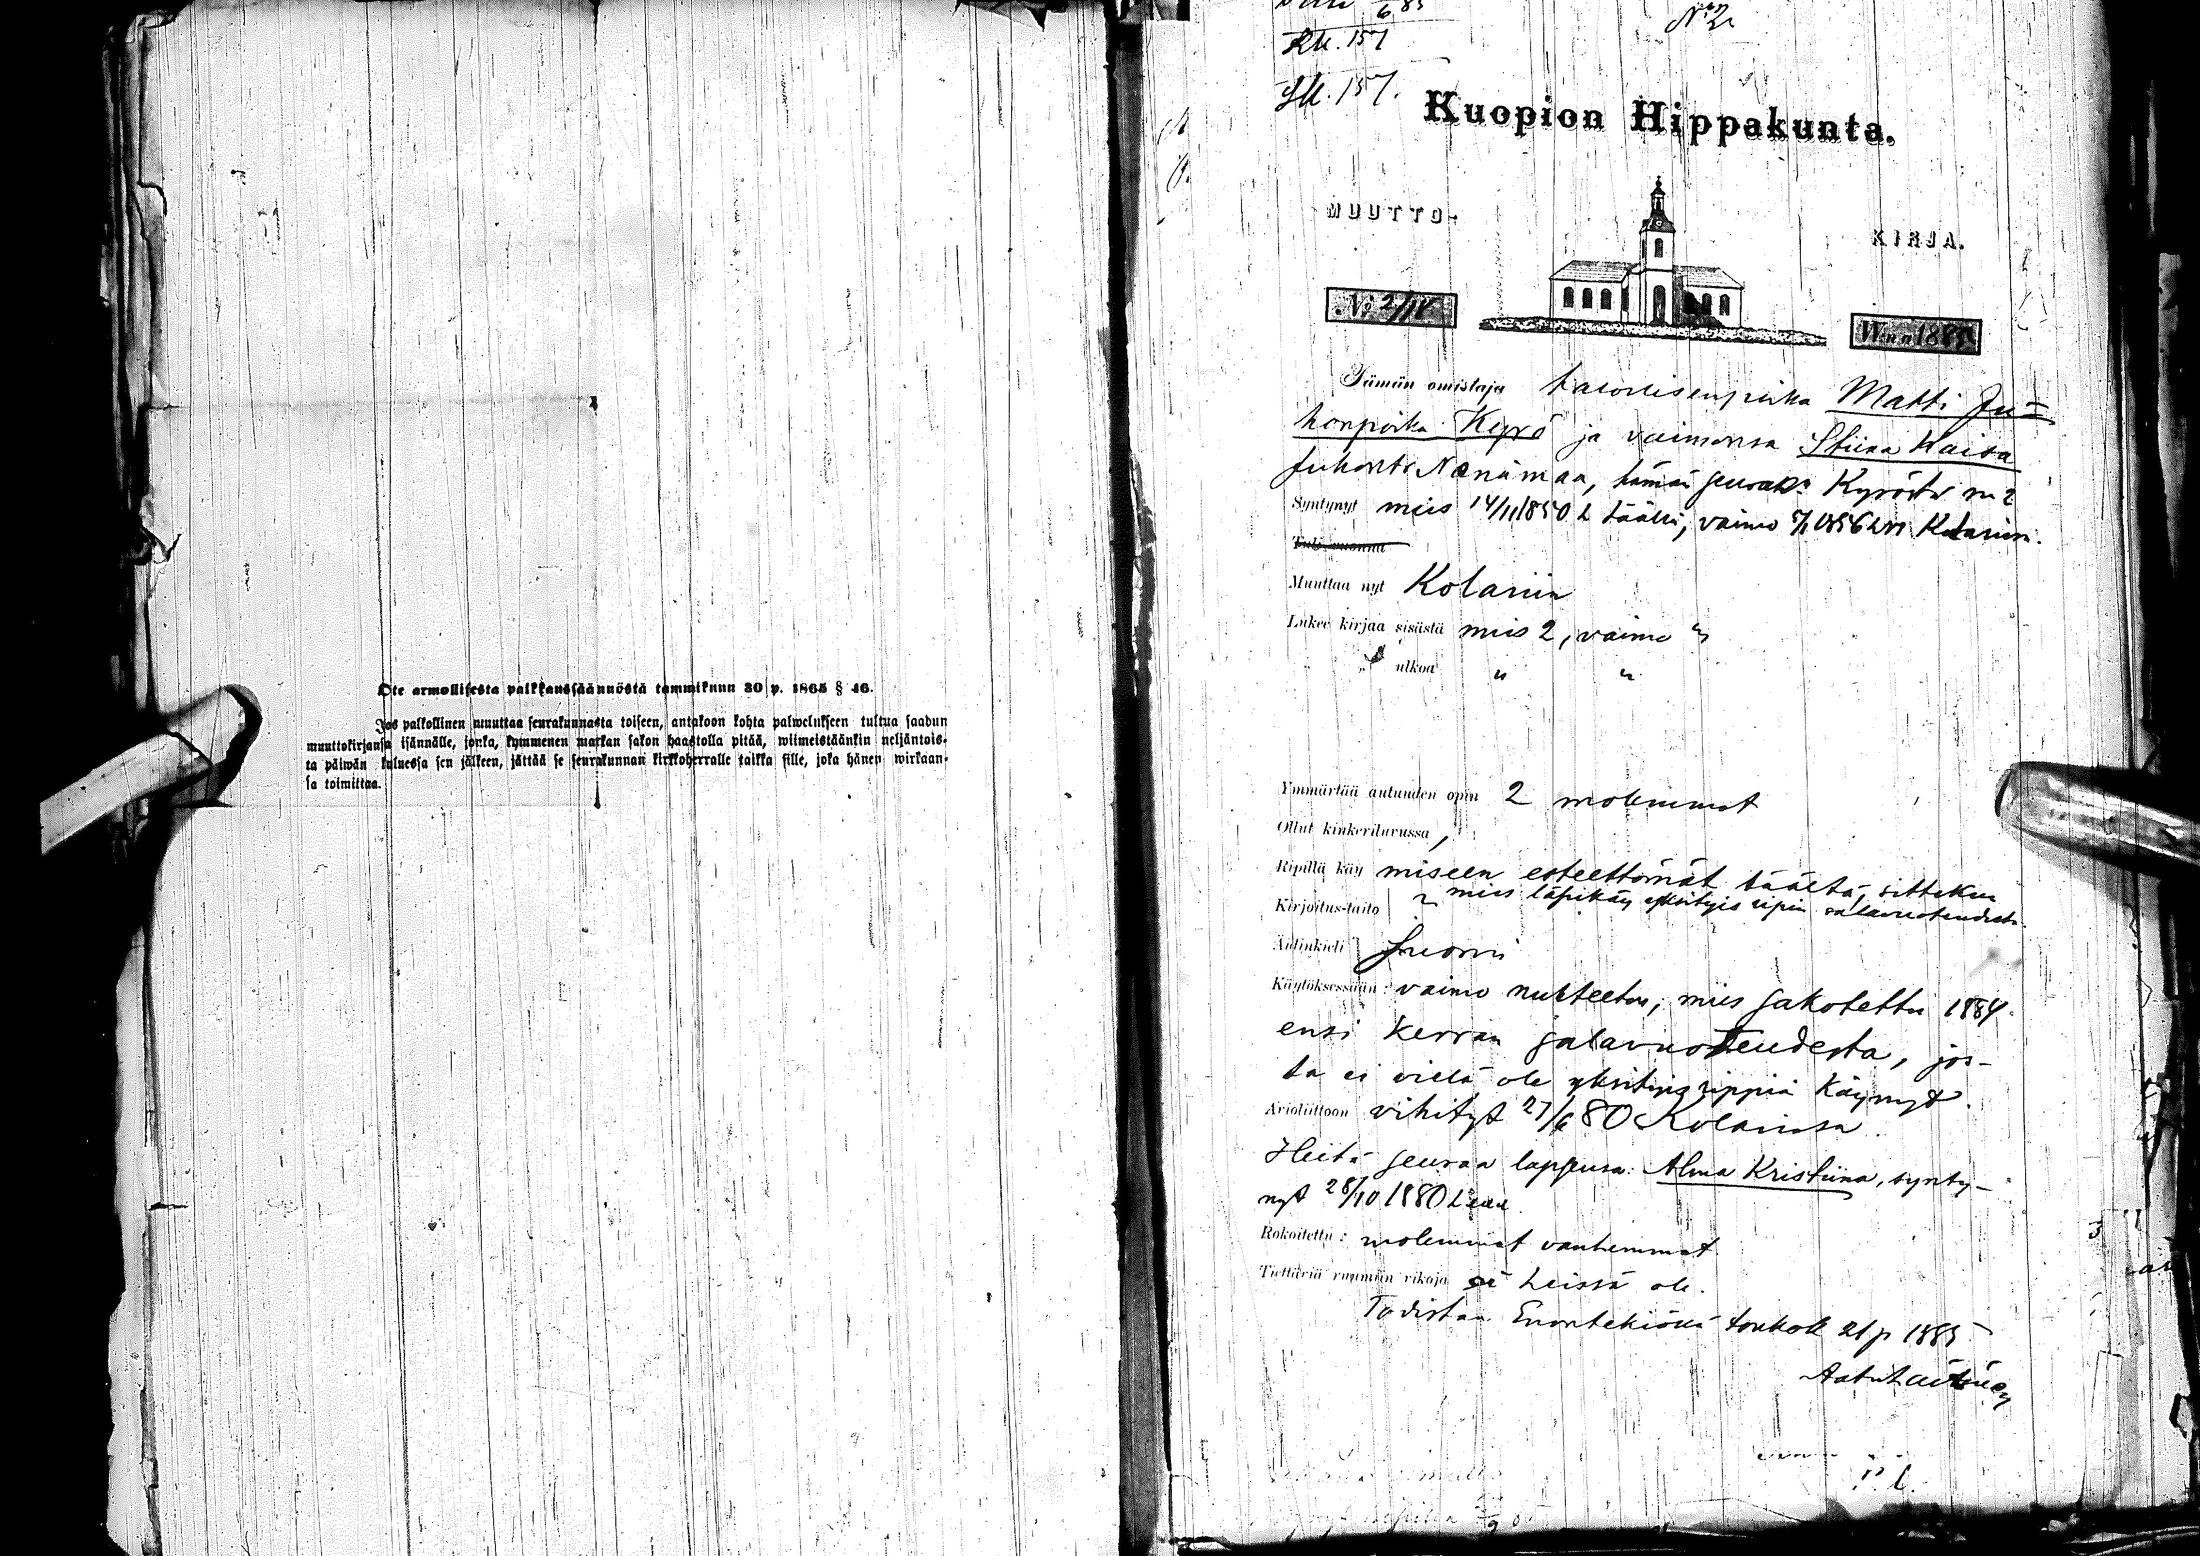 Ote armollisesta palkkaussäännöstä tammikuun 30 p. 1865 § 46.
Jos palkollinen muuttaa seurakunnasta toiseen, antakoon kohta palwelukseen tultua saadun
muuttokirjansa isännälle, jonka, kymmenen markan sakon haastolla pitää, wiimeistäänkin neljäntois-
ta päiwän kuluessa sen jälkeen, jättää se seurakunnan kirkkoherralle taikka sille, joka hänen wirkaan-
sa toimittaa.
6 85
Rk. 157
Lk. 157.
No 2
Kuopion Hippakunta.
MUUTTO-
KIRJA.
No 2/IV
Wnna 1885
Tämän omistaja talollisenpoika Matti Ju-
honpoika Kyrö ja vaimonsa Stiina Kaisa
Juhont. Nänämaa, tämän seurak. Kyröstä n:o 2
Syntynyt mies 14/11 1850 täällä, vaimo 1856 Kolarissa.
Tuli wuonna
Muuttaa nyt Kolariin
Lukee kirjaa sisästä mies 2, vaimo "
" ulkoa " "
Ymmärtää autuuden opin 2 molemmat
Ollut kinkeriluwussa,
Ripillä käymiseen esteettömät täältä, sittekun
Kirjoitus-taito mies läpikäy yksityis ripin salavuoteudesta.
Äidinkieli Suomi
Käytöksessään: vaimo nuhteeton, mies sakotettu 1884
ensi kerran salavuoteudesta, jos-
ta ei vielä ole yksityis rippiä käynyt.
Awioliittoon vihityt 27/6 80 Kolarissa.
Heitä seuraa lapsensa: Alma Kristiina, synty-
nyt 28/10 1880
Rokoitettu: molemmat vanhemmat
Tiettäwiä ruumiin wikoja ei heissä ole.
Todistaa Enontekiössä toukok. 21 p 1885
Aatu Laitinen